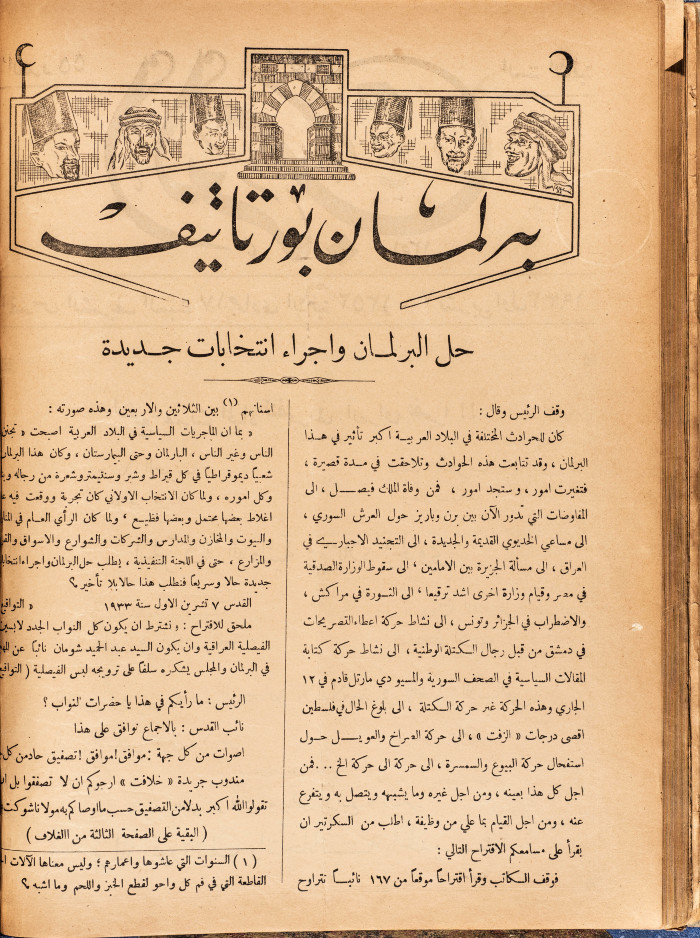 برلمان بورتاتيف
حل البرلمان واجراء انتخابات جديدة
وقف الرئيس وقال :
كان للحوادث المختلفة في البلاد العربية اكبر تأثير في هذا
البرلمان ، وقد تتابعت هذه الحوادث وتلاحقت في مدة قصيرة ،
فتغيرت امور ، وستجد امور ، فمن وفاة الملك فيصل ، الى
المفاوضات التي تدور الآن بين برن وباريز حول العرش السوري ،
الى مساعي الخديوي القديمة والجديدة ، الى التجنيد الاجباري في
العراق ، الى مسألة الجزيرة بين الامامين ، الى سقوط الوزارة الصدقية
في مصر وقيام وزارة اخرى اشد ترقيعا ، الى الثورة في مراكش ،
والاضطراب في الجزائر وتونس ، الى نشاط حركة اعطاء التصريحات
في دمشق من قبل رجال الكتلة الوطنية ، الى نشاط حركة كتابة
المقالات السياسية في الصحف السورية والمسيو دي مارتل قادم في ١٢
الجاري وهذه الحركة غير حركة الكتلة ، الى بلوغ الحال في فلسطين
اقصى درجات « الزفت » ، الى حركة الصراخ والعويل حول
استفحال حركة البيوع والسمسرة ، الى حركة الى حركة الخ ... فمن
اجل كل هذا بعينه ، ومن اجل غيره وما يشبهه ويتصل به ويتفرع
عنه ، ومن اجل القيام بما علي من وظيفة ، اطلب من السكرتير ان
يقرأ على مسامعكم الاقتراح التالي :
فوقف الكاتب وقرأ اقتراحاً موقعاً من ١٦٧ نائبـاً تتراوح
اسنانهم (١) بين الثلاثين والاربعين وهذه صورته :
« بما ان الماجريات السياسية في البلاد العربية اصبحت « تجنن
الناس وغير الناس ، البارلمان وحتى البيمارستان ، وكان هذا البرلمان
شعبياً ديموقراطياً في كل قيراط وشبر وسنتيمتر وشعرة من رجاله
وكل اموره ، ولما كان الانتخاب الاولاني كان تجربة ووقعت فيه
اغلاط بعضها محتمل وبعضها فظيع ، ولما كان الرأي العام في
والبيوت والمخازن والمدارس والشركات والشوارع والاسواق
والمزارع ، حتى في اللجنة التنفيذية ، يطلب حل البرلمان واجراء
جديدة حالا وسريعاً فنطلب هذا حالا بلا تأخير ؟
القدس ٧ تشرين الاول سنة ١٩٣٣ « التواقيع
ملحق للاقتراح : ونشترط ان يكون كل النواب الجدد
الفيصلية العراقية وان يكون السيد عبد الحميد شومان نائباً عن
في البرلمان والمجلس يشكره سلفاً على ترويجه لبس الفيصلية
الرئيس : ما رأيكم في هذا يا حضرات النواب ؟
نائب القدس : بالاجماع توافق على هذا
اصوات من كل جهة : موافق ! موافق ! تصفيق حاد من كل
مندوب جريدة « خلافت » ارجوكم ان لا تصفقوا بل
تقولوا الله اكبر بدلا من التصفيق حسب ما اوصاكم به مولانا شوكت
( البقية على الصفحة الثالثة من الغلاف )
( ١ ) السنوات التي عاشوها واعمارهم ؛ وليس معناها الآلات
القاطعة التي في فم كل واحو لقطع الخبز واللحم وما اشبه ؟